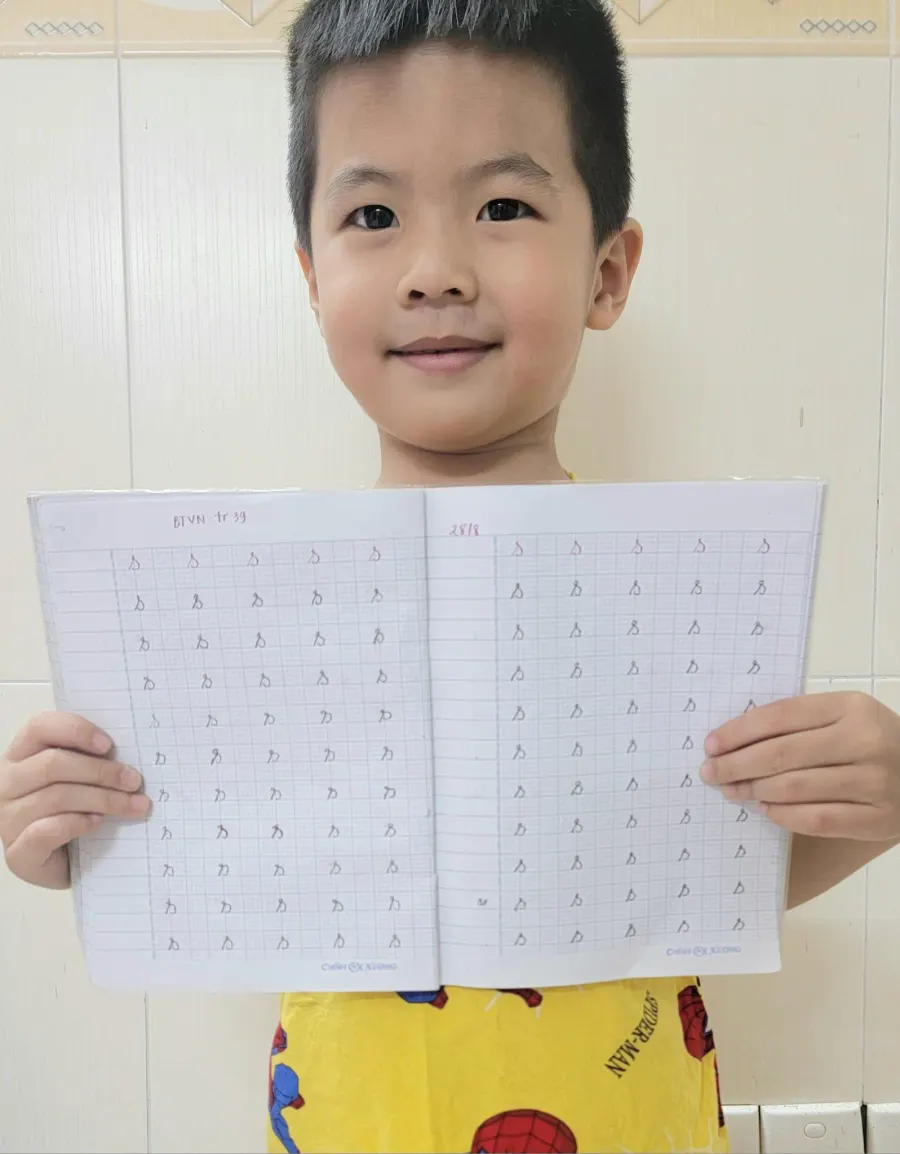 BTVN tr 39
s s s s s
s s s s s
s s s s s
s s s s s
s s s s s
s s s s s
s s s s s
s s s s s
s s s s s
s s s s s
s s s s s
28/8
s s s s s
s s s s s
s s s s s
s s s s s
s s s s s
s s s s
s s s s
s s s s s
s s s s s
s s s s s
s s s s s
SPIDER-MAN